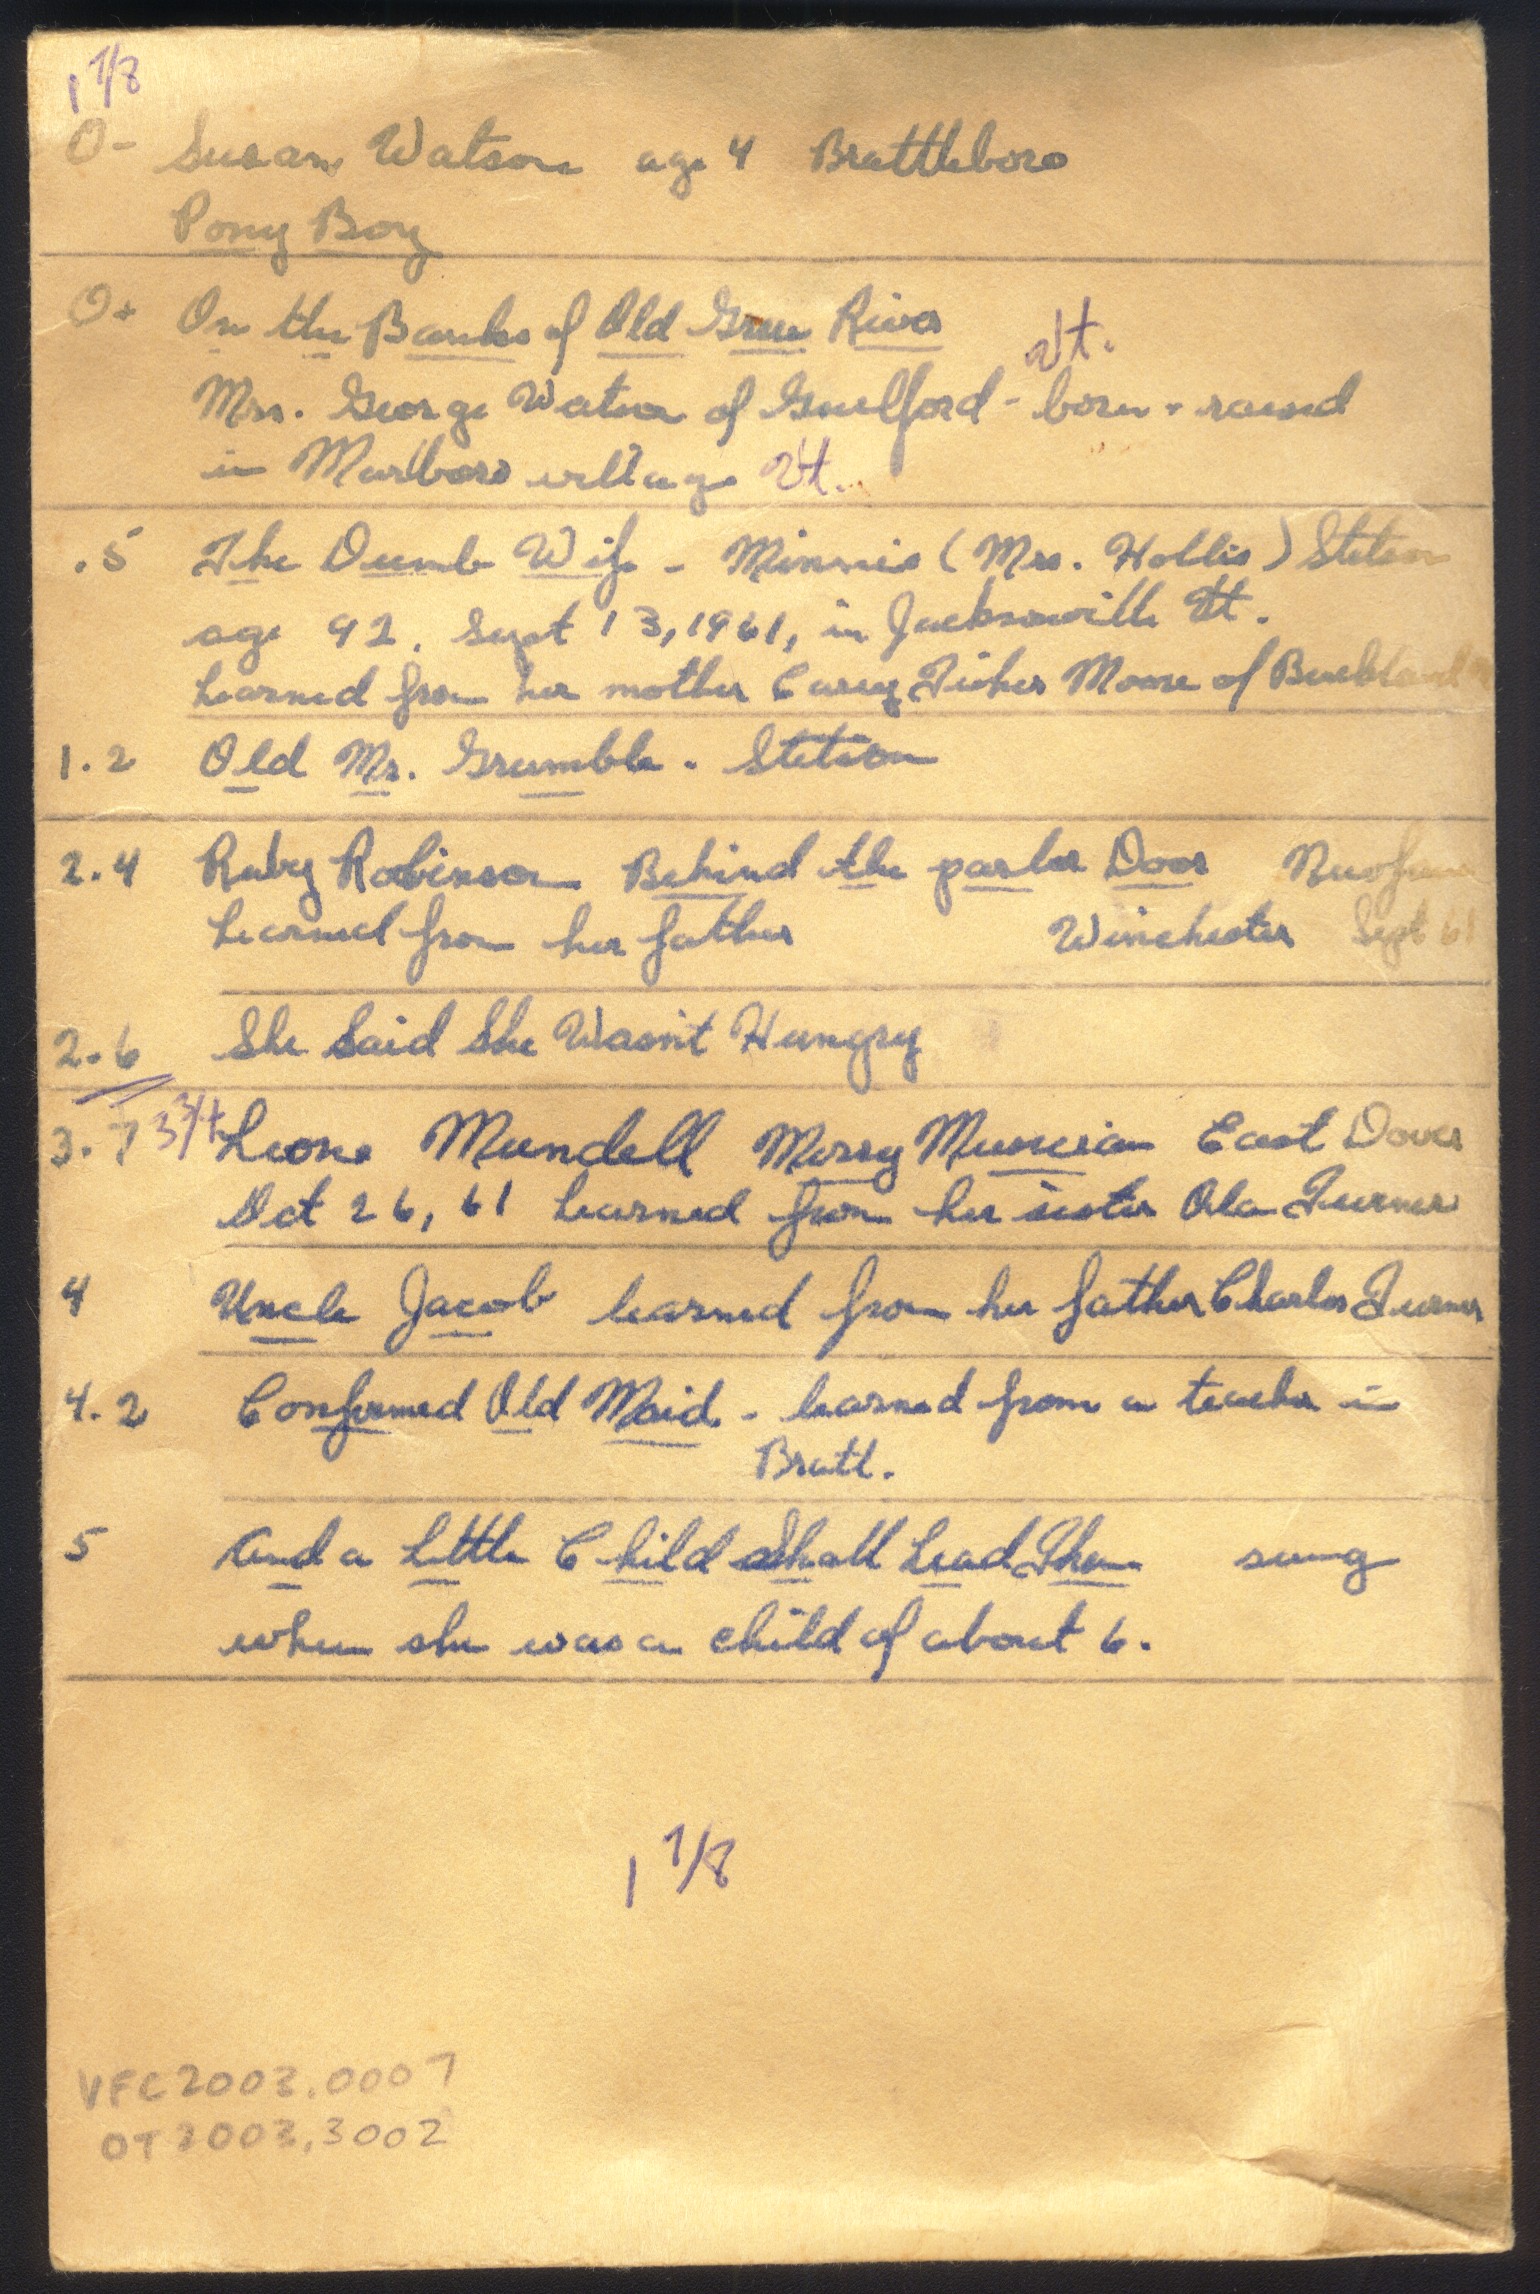 1 7/8
0- Susan Watson age 4 Brattleboro
Pony Boy
0+ On the Banks of Old Green River
Vt.
Mrs. George Watson of Guilford - born + raised
in Marlboro village Vt.
.5 The Dumb Wife - Minnie (Mrs. Hollis) Stetson
age 92. Sept 13, 1961, in Jacksonville Vt.
Learned from her mother Carey Fisher Moore of Buckland
1.2 Old Mr. Grumble. Stetson
2.4 Ruby Robinson Behind the parlor Door Newfane
Learned from her father Winchester Sept 61
2.6 She Said She Wasn't Hungry
3.7 3 3/4 Leone Mundell Merry Musician East Dover
Oct 26, 61 learned from her sister Ola Turner
4 Uncle Jacob learned from her father Charles Turner
4.2 Confirmed Old Maid - learned from a teacher in
Bratt.
5 And a Little Child Shall Lead Them sung
when she was a child of about 6.
1 7/8
VFC2003.0007
OT2003.3002